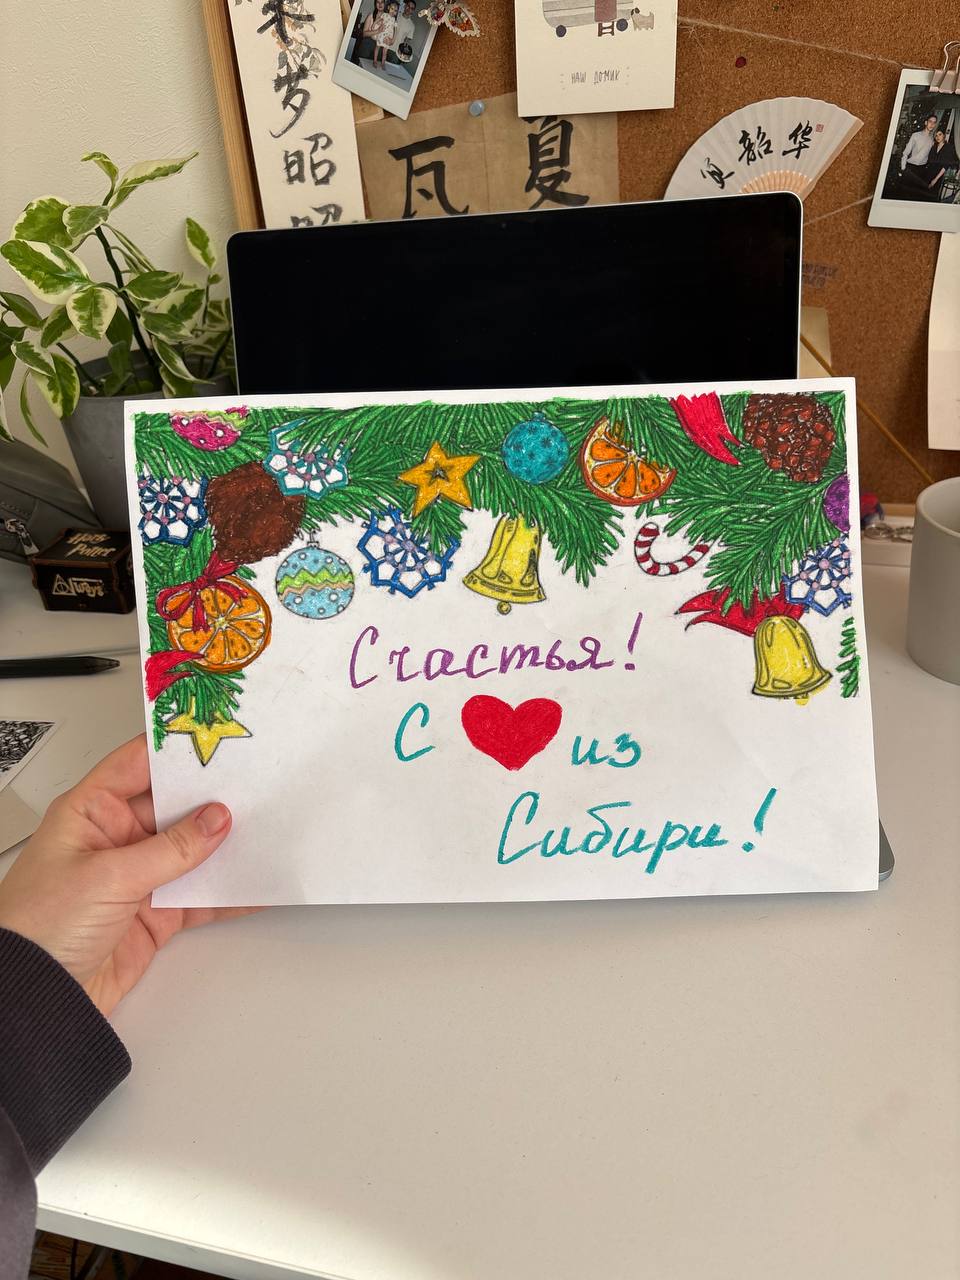 罗
昭
瓦
夏
НАШ ДОМИК
宜 韶 华
Harry
Potter
Always
Счастья!
С из
Сибири!